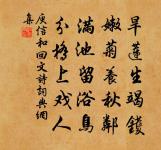 旱蓮生竭鑊
嫩菊養秋鄰
滿池留浴鳥
分橋上戲人
庾信和回文詩詞典網
集